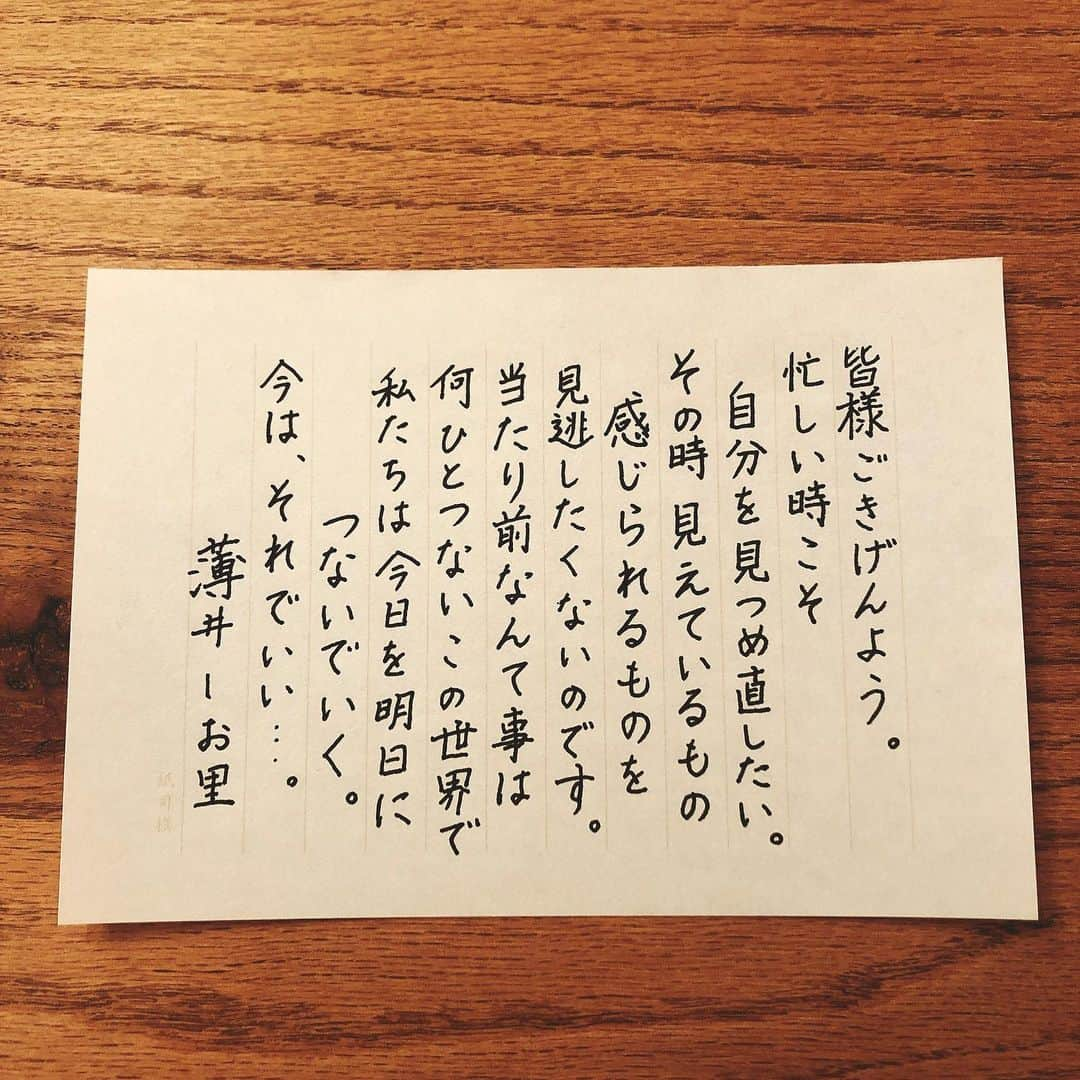 皆様ごきげんよう。
忙しい時こそ
自分を見つめ直したい。
その時 見えているもの
感じられるものを
見逃したくないのです。
当たり前なんて事は
何ひとつないこの世界で
私たちは今日を明日に
つないでいく。
今は、それでいい…。
薄井しお里